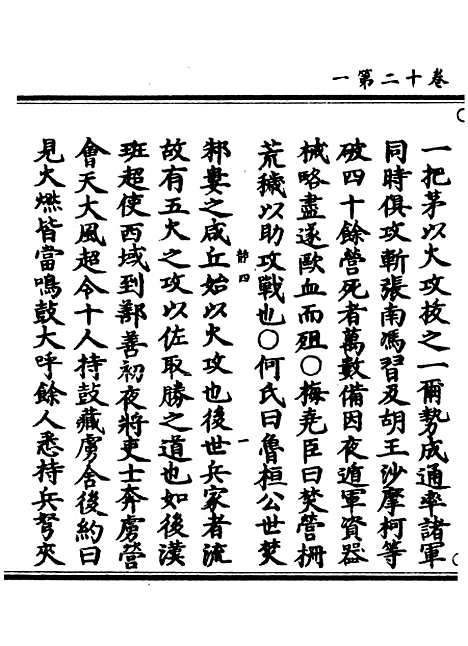 卷十二第一
一把茅以火攻拔之一爾勢成通率諸軍
同時俱攻斬張南馮習及胡王沙摩柯等
破四十餘營死者萬數備因夜遁軍資器
械略盡遂歐血而殂〇梅堯臣曰焚營柵
荒穢以助攻戰也〇何氏曰魯桓公世焚
邾婁之咸丘始以火攻也後世兵家者流
故有五火之攻以佐取勝之道也如後漢
班超使西域到鄯善初夜將吏士奔虜營
會天大風超令十人持鼓藏虜舍後約曰
見火燃皆當鳴鼓大呼餘人悉持兵弩夾